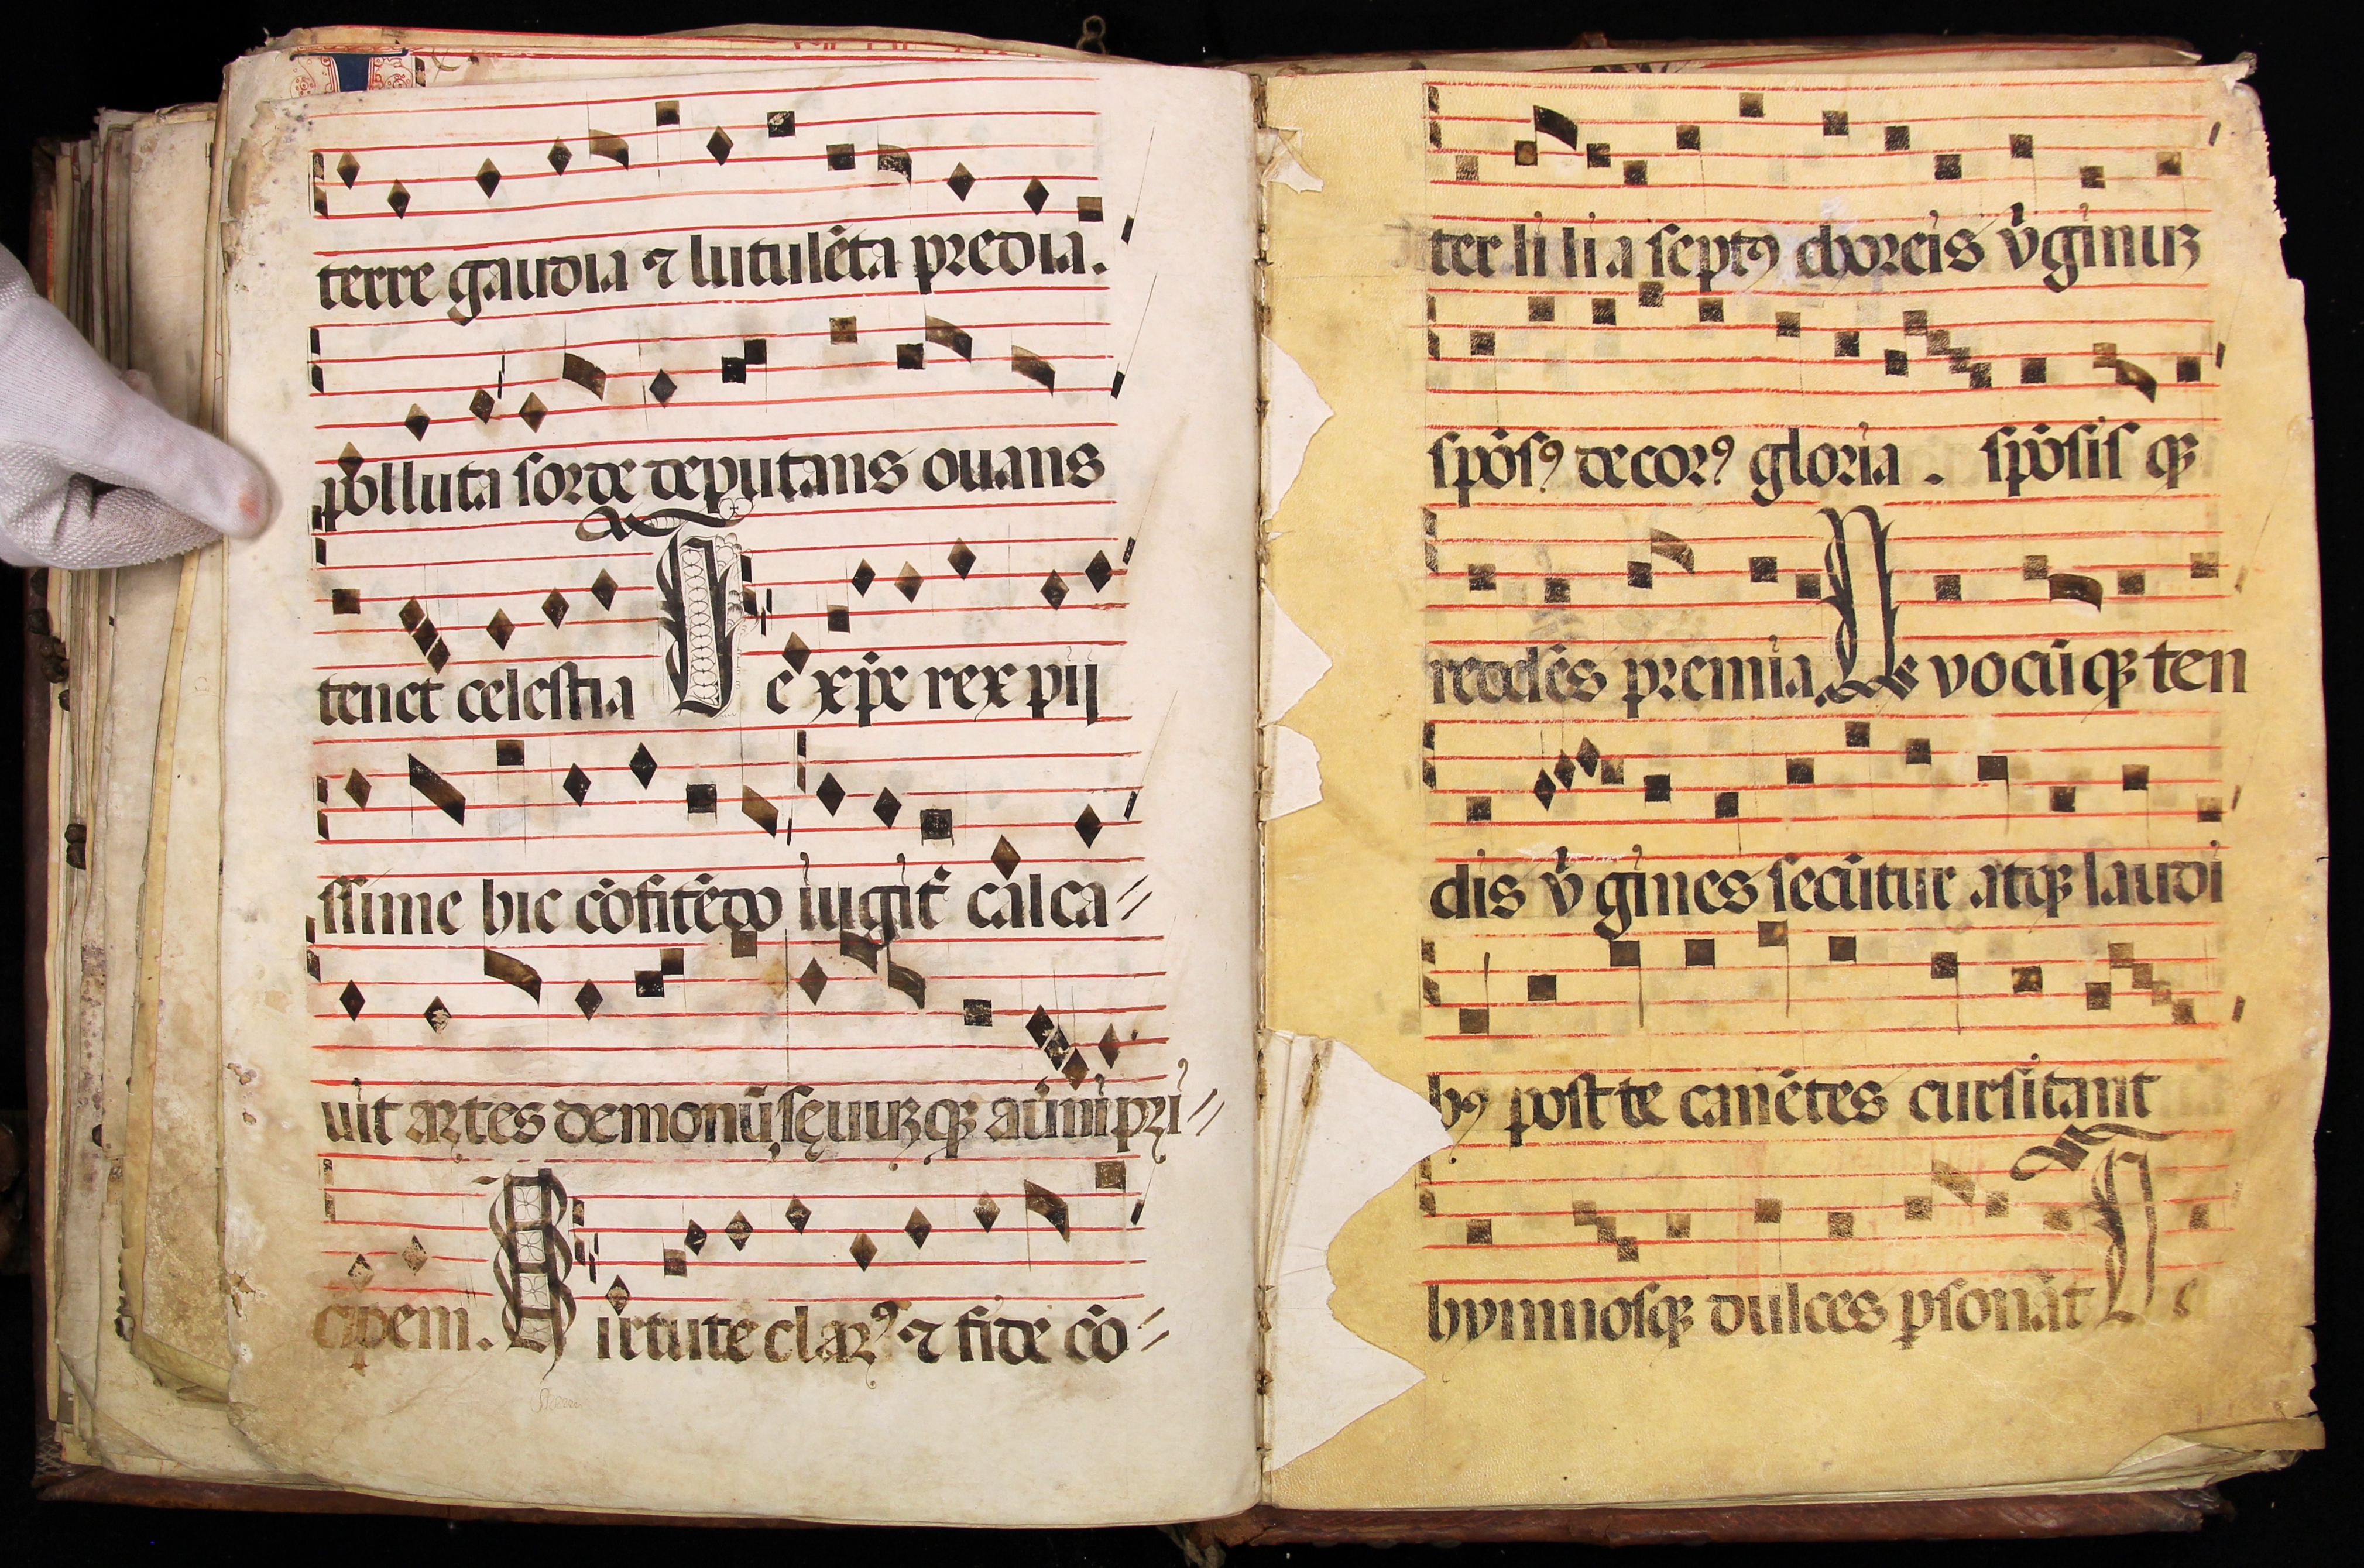 terre gaudia ⁊ lutulēta predia.
polluta sorde deputans ouans
tenet celestia Te xp̄e rex pij
ssime hic cōfitēdo iugit̄ calca〃
uit artes demonū sęuuꝫqꝫ aūni pri〃
cipem. Uirtute clarꝰ ⁊ fide cō〃
ter lilia septꝰ choreis v̄ginuꝫ
spōsꝰ decorꝰ gloria. spōsis qꝫ
reddēs premia. Qvocūqꝫ ten
dis v̄gines secūtur atqꝫ laudi
bꝰ post te canētes cursitant
hymnosqꝫ dulces ꝑsonāt Te